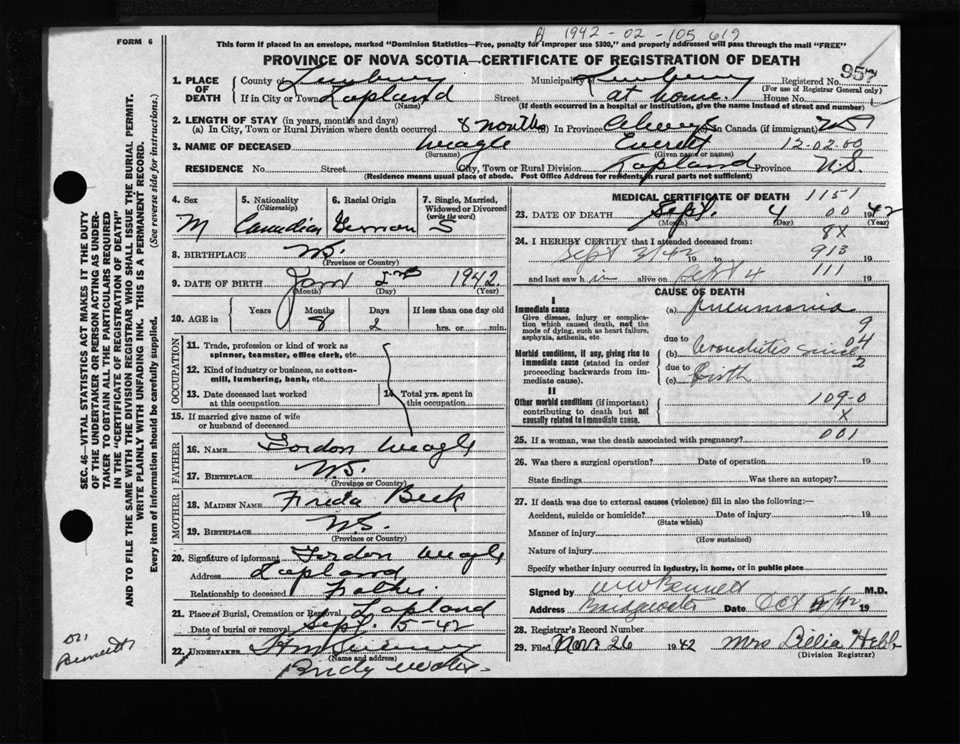 1942 - 02 - 105 619
FORM 6
This form if placed in an envelope, marked "Dominion Statistics—Free, penalty for improper use $300," and properly addressed will pass through the mail "FREE"
PROVINCE OF NOVA SCOTIA—CERTIFICATE OF REGISTRATION OF DEATH
957
1. PLACE OF DEATH County of Lunenburg Municipality of Lunenburg Registered No.
(For use of Registrar General only)
If in City or Town Lapland Street at home House No.
(Name) (If death occurred in a hospital or institution, give the name instead of street and number)
2. LENGTH OF STAY (in years, months and days)
(a) In City, Town or Rural Division where death occurred 8 months In Province Always In Canada (if immigrant)
3. NAME OF DECEASED Weagle Everett 12-02.00
(Surname) (Given name or names)
RESIDENCE No. Street City, Town or Rural Division Lapland Province N.S.
(Residence means usual place of abode. Post Office Address for residents in rural parts not sufficient)
4. Sex M
5. Nationality (Citizenship) Canadian
6. Racial Origin German
7. Single, Married, Widowed or Divorced (write the word) S
8. BIRTHPLACE N.S.
(Province or Country)
9. DATE OF BIRTH Jan 2nd 1942
(Month) (Day) (Year)
10. AGE in Years Months 8 Days 2 If less than one day old hrs. or min.
OCCUPATION
11. Trade, profession or kind of work as spinner, teamster, office clerk, etc.
12. Kind of industry or business, as cotton-mill, lumbering, bank, etc.
13. Date deceased last worked at this occupation
14. Total yrs. spent in this occupation
15. If married give name of wife or husband of deceased
FATHER
16. NAME Gordon Weagle
17. BIRTHPLACE N.S.
(Province or Country)
MOTHER
18. MAIDEN NAME Freda Beck
19. BIRTHPLACE N.S.
(Province or Country)
20. Signature of informant Gordon Weagle
Address Lapland
Relationship to deceased Father
21. Place of Burial, Cremation or Removal Lapland
Date of burial or removal Sept. 5-42
22. UNDERTAKER
(Name and address)
Bridgewater
MEDICAL CERTIFICATE OF DEATH 1151
23. DATE OF DEATH Sept. 4 1942
(Month) (Day) (Year)
00
8X
24. I HEREBY CERTIFY that I attended deceased from:
Sept 2/42 19 to 913 19
and last saw h im alive on Sept 4 111 19
CAUSE OF DEATH
I
Immediate cause
Give disease, injury or complication which caused death, not the mode of dying, such as heart failure, asphyxia, asthenia, etc.
(a) Pneumonia
9
due to 04
Morbid conditions, if any, giving rise to immediate cause (stated in order proceeding backwards from immediate cause).
(b) bronchitis since
2
due to
(c) birth
II
Other morbid conditions (if important) contributing to death but not causally related to immediate cause.
109-0
X
25. If a woman, was the death associated with pregnancy? 001
26. Was there a surgical operation? Date of operation 19
State findings Was there an autopsy?
27. If death was due to external causes (violence) fill in also the following:—
Accident, suicide or homicide? Date of injury 19
(State which)
Manner of injury
(How sustained)
Nature of injury
Specify whether injury occurred in industry, in home, or in public place
Signed by W W Bennett M.D.
Address Bridgewater Date Oct /42 19
28. Registrar's Record Number
29. Filed Nov. 26 1942 Mrs Lillia Hebb
(Division Registrar)
SEC. 46—VITAL STATISTICS ACT MAKES IT THE DUTY OF THE UNDERTAKER OR PERSON ACTING AS UNDERTAKER TO OBTAIN ALL THE PARTICULARS REQUIRED IN THE "CERTIFICATE OF REGISTRATION OF DEATH" AND TO FILE THE SAME WITH THE DIVISION REGISTRAR WHO SHALL ISSUE THE BURIAL PERMIT.
WRITE PLAINLY WITH UNFADING INK. THIS IS A PERMANENT RECORD.
Every item of information should be carefully supplied. (See reverse side for instructions.)
Dr. Bennett